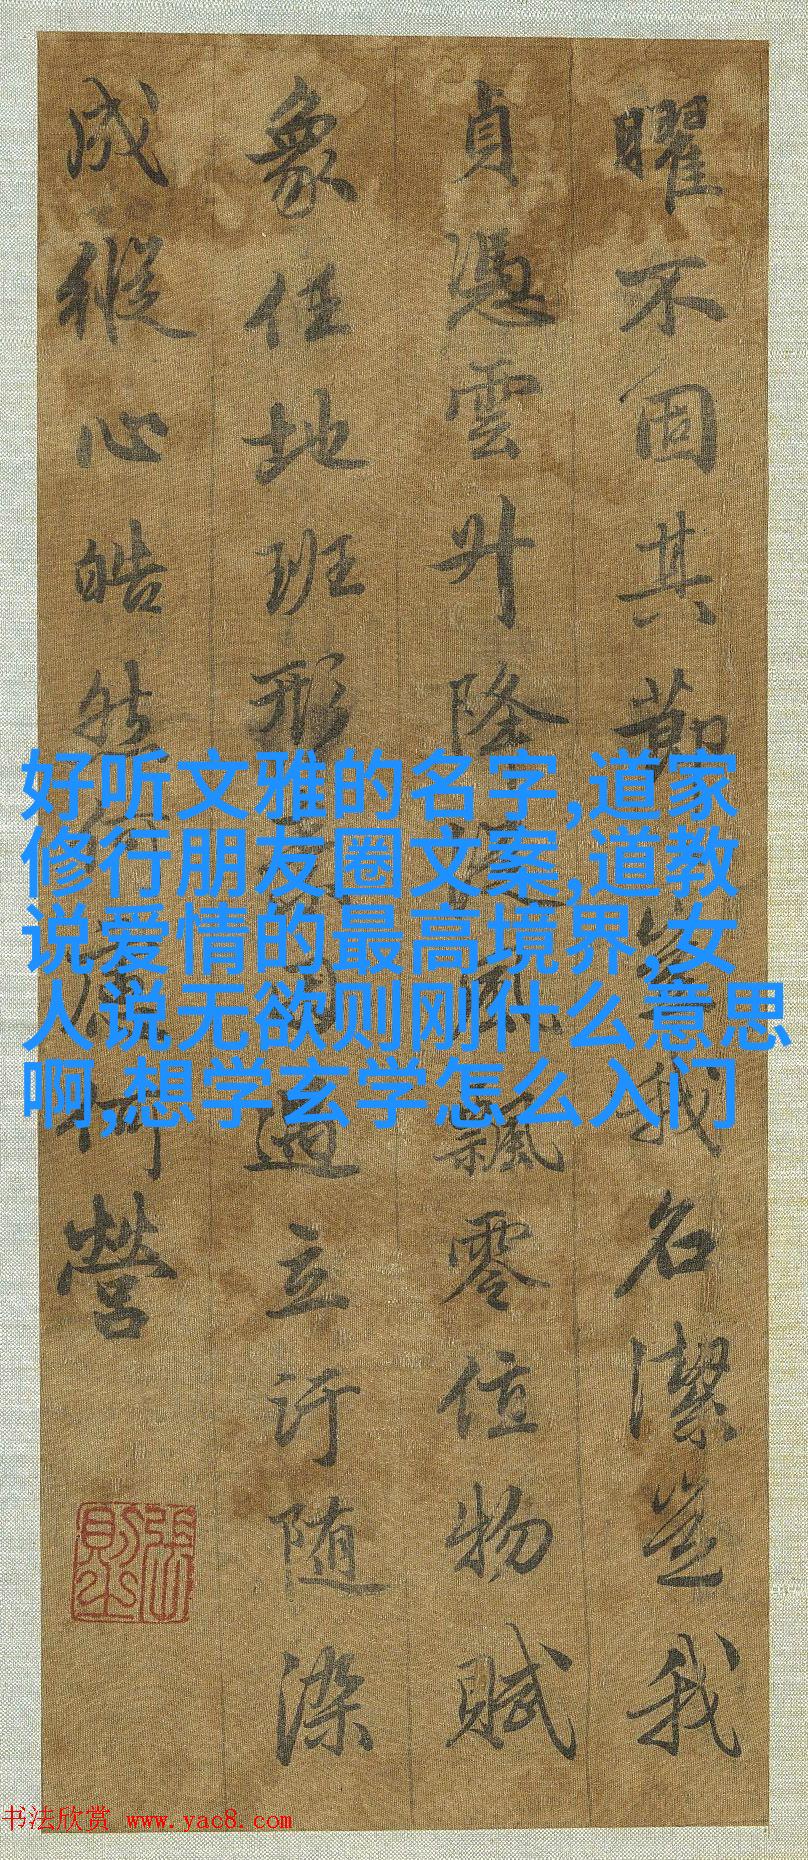 曜不固其節豈我名潔豈我
貞憑雲升降從風飄零值物賦
象任地班形素因遇立汙随染
成縱心皓然何慮何營
張則之
好听文雅的名字,道家
修行朋友圈文案,道教
说爱情的最高境界,女
人说无欲则刚什么意思
啊,想学玄学怎么入门
书法欣赏 www.yac8.com